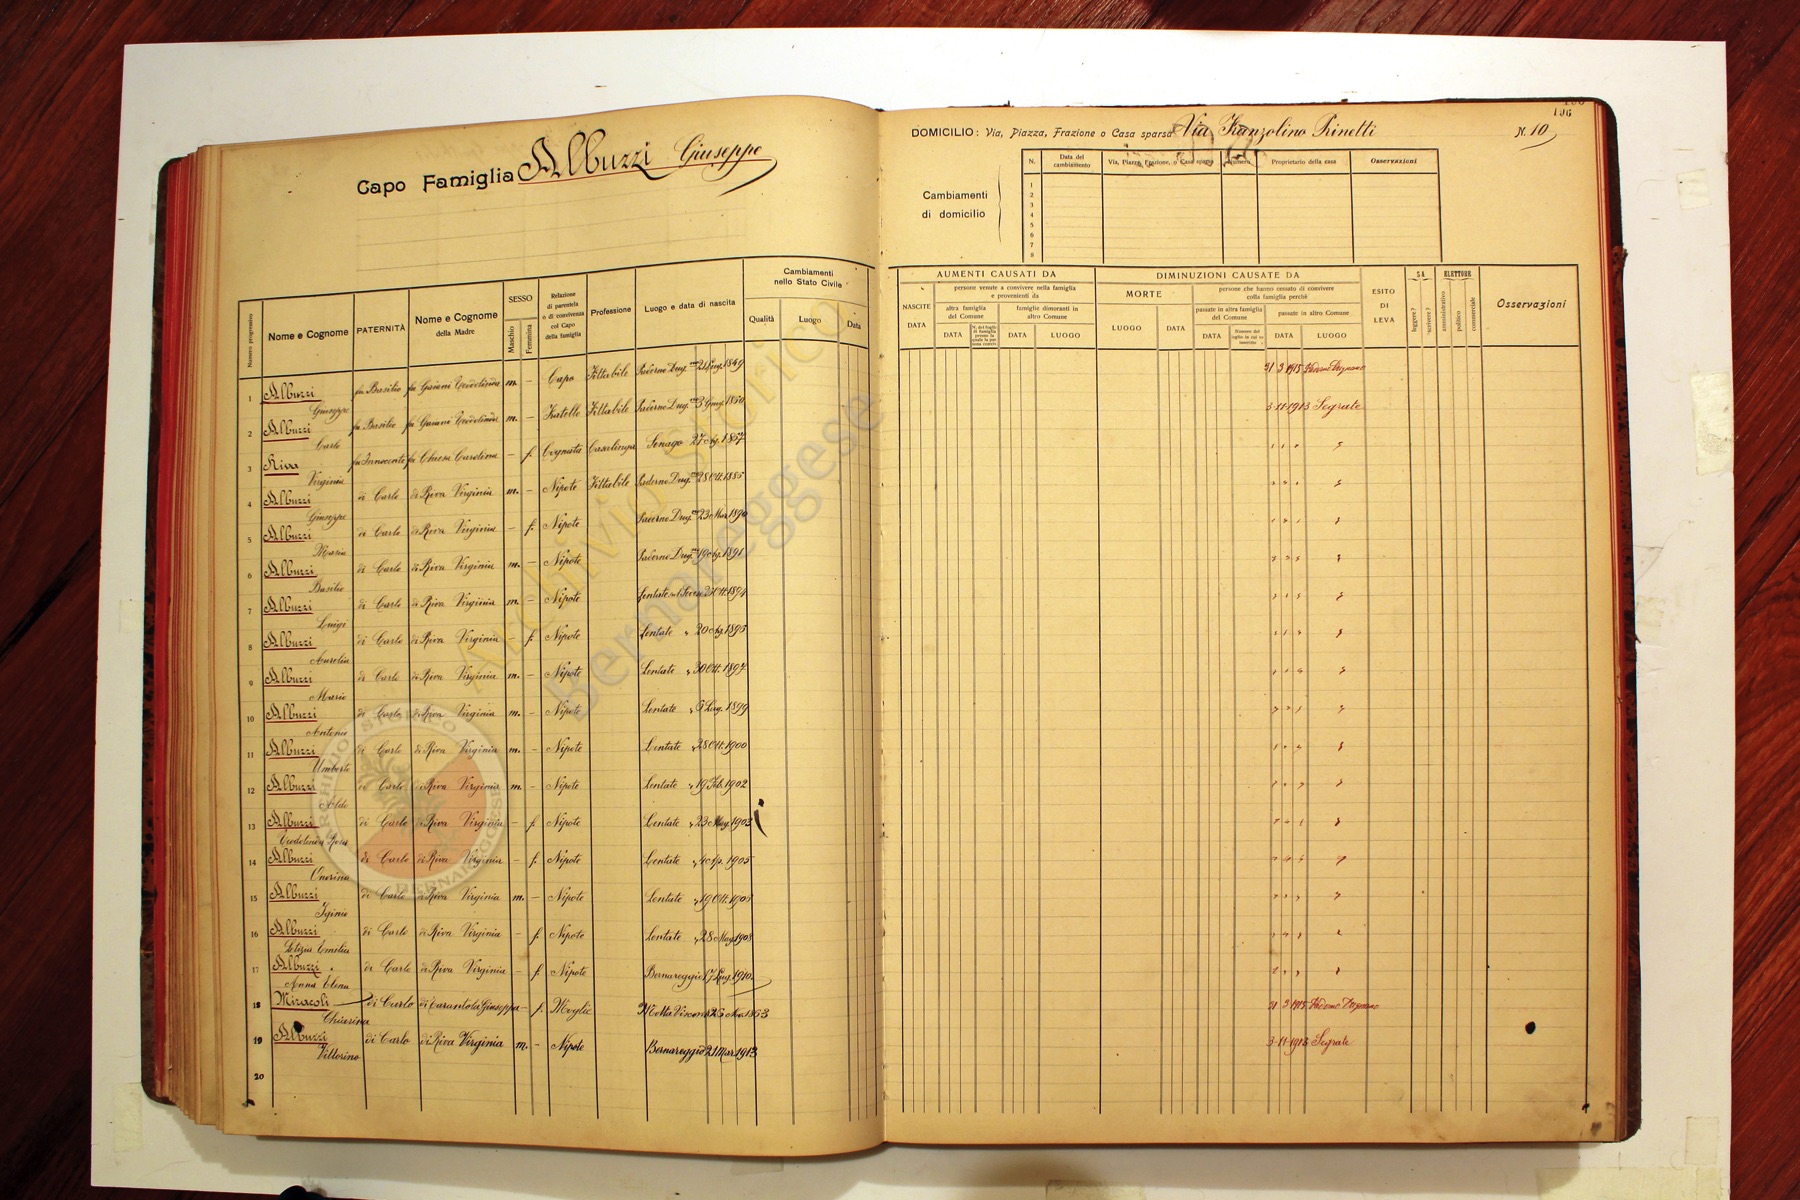 196
Capo Famiglia Albuzzi Giuseppe
DOMICILIO: Via, Piazza, Frazione o Casa sparsa Via Franzolino Prinetti N. 10
Cambiamenti di domicilio
N. Data del cambiamento Via, Piazza, Frazione, o Casa sparsa Numero Proprietario della casa Osservazioni
1
2
3
4
5
6
7
8
Numero progressivo Nome e Cognome PATERNITÀ Nome e Cognome della Madre SESSO Maschio Femmina Relazione di parentela o di convivenza col Capo della famiglia Professione Luogo e data di nascita Cambiamenti nello Stato Civile Qualità Luogo Data
AUMENTI CAUSATI DA
NASCITE DATA
persone venute a convivere nella famiglia e provenienti da
altra famiglia del Comune DATA
famiglie dimoranti in altro Comune DATA LUOGO
DIMINUZIONI CAUSATE DA
MORTE LUOGO DATA
persone che hanno cessato di convivere colla famiglia perchè
passate in altra famiglia del Comune DATA
passate in altro Comune DATA LUOGO
ESITO DI LEVA
SA leggere? scrivere?
ELETTORE amministrativo politico commerciale
Osservazioni
1 Albuzzi Giuseppe fu Basilio fu Gaiani Teodolinda m. – Capo Fittabile Paderno Dug. Lug. 1849 31 3 1915 Paderno Dugnano
2 Albuzzi Carlo fu Basilio fu Gaiani Teodolinda m. – Fratello Fittabile Paderno Dug. 3 1850 3-11-1913 Segrate
3 Riva Virginia fu Innocente fu Chiesa Carolina – f. Cognata Casalinga Senago 27 Ag. 1857
4 Albuzzi Giuseppe di Carlo di Riva Virginia m. – Nipote Fittabile Paderno Dug. 28 Ott. 1885
5 Albuzzi Maria di Carlo di Riva Virginia – f. Nipote Paderno Dug. 23 Mar. 1890
6 Albuzzi Basilio di Carlo di Riva Virginia m. – Nipote Paderno Dug. 19 Ag. 1891
7 Albuzzi Luigi di Carlo di Riva Virginia m. – Nipote Lentate sul Seveso Ott. 1894
8 Albuzzi Aurelia di Carlo di Riva Virginia – f. Nipote Lentate " 20 Ag. 1895
9 Albuzzi Mario di Carlo di Riva Virginia m. – Nipote Lentate " 30 Ott. 1897
10 Albuzzi Antonio di Carlo di Riva Virginia m. – Nipote Lentate " Lug. 1899
11 Albuzzi Umberto di Carlo di Riva Virginia m. – Nipote Lentate " 28 Ott. 1900
12 Albuzzi Aldo di Carlo di Riva Virginia m. – Nipote Lentate " 19 Feb. 1902
13 Albuzzi Teodolinda Rosa di Carlo di Riva Virginia – f. Nipote Lentate " 23 Mag. 1903
14 Albuzzi Onorina di Carlo di Riva Virginia – f. Nipote Lentate " 4 Ap. 1905
15 Albuzzi Iginio di Carlo di Riva Virginia m. – Nipote Lentate " 19 Ott.
16 Albuzzi Letizia Emilia di Carlo di Riva Virginia – f. Nipote Lentate " 28 Mag. 1908
17 Albuzzi Anna Elena di Carlo di Riva Virginia – f. Nipote Bernareggio 17 Lug. 1910
18 Miracoli Chiarina di Carlo di Carantola Giuseppa – f. Moglie Motta Visconti 25 1853 31 3 1915 Paderno Dugnano
19 Albuzzi Vittorino di Carlo di Riva Virginia m. – Nipote Bernareggio 21 Mar. 1913 3-11-1913 Segrate
20
Archivio Storico
Bernareggese
ARCHIVIO STORICO
BERNAREGGESE